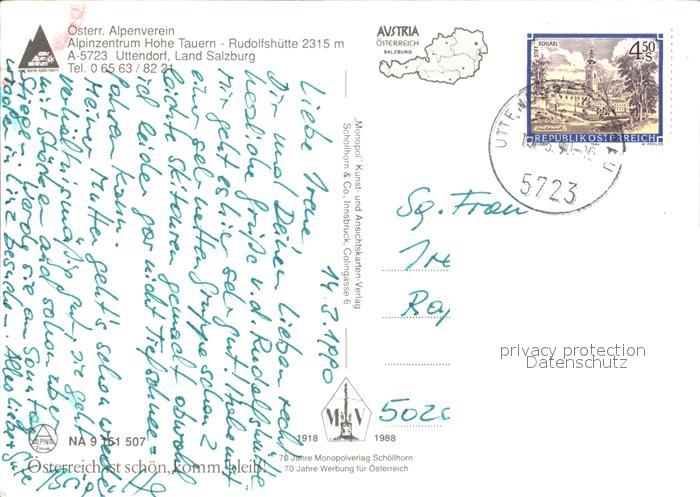 Österr. Alpenverein
Alpinzentrum Hohe Tauern - Rudolfshütte 2315 m
A-5723 Uttendorf, Land Salzburg
Tel. 0 65 63 / 82 21
AVSTRIA
ÖSTERREICH
SALZBURG
STIFT SCHLÄGL
4.50
S
REPUBLIK ÖSTERREICH
5723
„Monopol" Kunst- und Ansichtskarten-Verlag
Schöllhorn & Co., Innsbruck, Colingasse 6
14.3.1990
Liebe Irene
Dir und Deinen Lieben recht
herzliche Grüße v.d. Rudolfshütte.
Mir geht es hier sehr gut! Habe mit
einer sehr netten Gruppe schon 2
leichte Skitouren gemacht obwohl
ich leider gar nicht Tiefschnee-
fahren kann.
Meiner Mutter geht's schon wieder
verhältnismäßig gut, sie geht
mit Stöcken auch schon über
Stiegen. Werde sie am Sonntag
in Linz besuchen. Alles Liebe + Gute
Sg. Frau
Ire
Ray
5020
privacy protection
Datenschutz
M V
1918 1988
70 Jahre Monopolverlag Schöllhorn
70 Jahre Werbung für Österreich
ALPINA
NA 9 161 507
Österreich ist schön, komm, bleib!